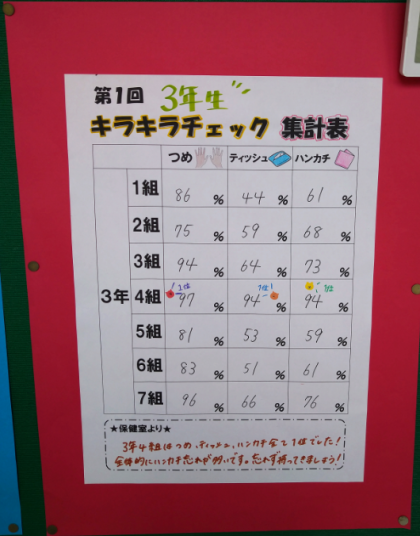 第1回 3年生
キラキラチェック 集計表
つめ ティッシュ ハンカチ
3年
1組 86% 44% 61%
2組 75% 59% 68%
3組 94% 64% 73%
1位 1位! 1位
4組 97% 94% 94%
5組 81% 53% 59%
6組 83% 51% 61%
7組 96% 66% 76%
★保健室より★
3年4組はつめ、ティッシュ、ハンカチ全て1位でした!
全体的にハンカチ忘れが多いです。忘れず持ってきましょう!